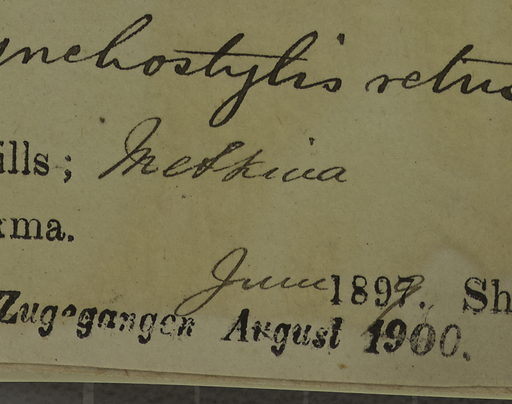 ynchostylis retus
ills; Meskina
rma.
June 1897. Sh
Zugegangen August 1900.